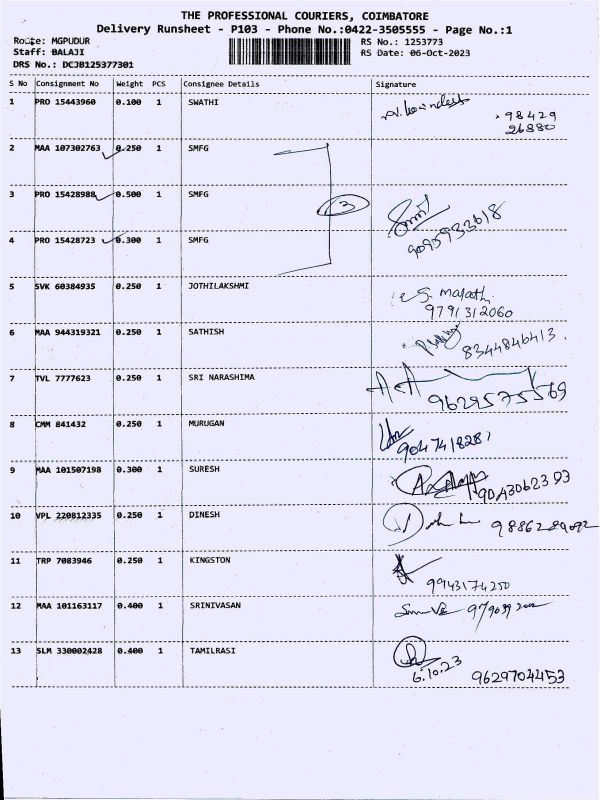 THE PROFESSIONAL COURIERS, COIMBATORE
Delivery Runsheet - P103 - Phone No.:0422-3505555 - Page No.:1
Route: MGPUDUR
RS No.: 1253773
Staff: BALAJI
RS Date: 06-Oct-2023
DRS No.: DCJB125377301
S No Consignment No Weight PCS Consignee Details Signature
1 PRO 15443960 0.100 1 SWATHI
98429
26880
2 MAA 107302763 0.250 1 SMFG
3 PRO 15428988 0.500 1 SMFG
3
9095933618
4 PRO 15428723 0.300 1 SMFG
5 SVK 60384935 0.250 1 JOTHILAKSHMI
9791312060
6 MAA 944319321 0.250 1 SATHISH
8344846413.
7 TVL 7777623 0.250 1 SRI NARASHIMA
9629575569
8 CMM 841432 0.250 1 MURUGAN
9047418287
9 MAA 101507198 0.300 1 SURESH
9043062393
10 VPL 220812335 0.250 1 DINESH
11 TRP 7083946 0.250 1 KINGSTON
9943174250
12 MAA 101163117 0.400 1 SRINIVASAN
13 SLM 330002428 0.400 1 TAMILRASI
6.10.23
9629704453